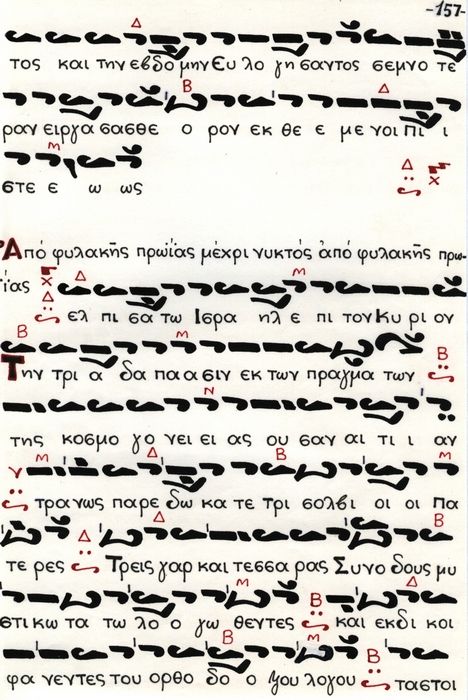 -157-
τος και την εβδο μην Ευ λο γη σαντος σεμνο τε
ραν ειργα σασθε ο ρον εκ θε ε με νοι πι ι
στε ε ω ως
Ἀπό φυλακῆς πρωΐας μέχρι νυκτός ἀπό φυλακῆς πρω-
ΐας
ελ πι σα τω Ισρα ηλ ε πι τον Κυ ρι ον
Την τρι α δα πα α σιν εκ των πραγμα των
της κοσμο γο νει ει ας ου σαν αι τι ι αν
τρανως παρε δω κα τε τρι σολβι οι οι Πα
τε ρες Τρεις γαρ και τεσσα ρας Συνο δους μυ
στι κω τα τω λο ο γω θεντες και εκδι κοι
φα νεντες του ορθο δο ο ξου λογου ταστοι